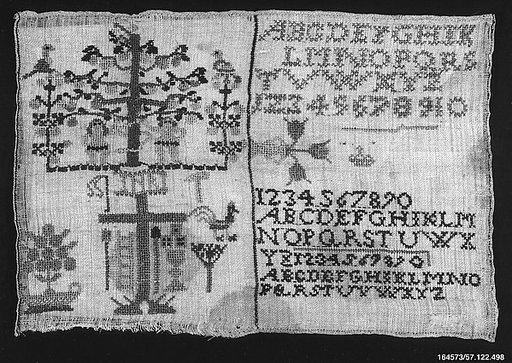 ABCDEFGHIK
LMNOPQRS
TVUWXYZ
12345678910
1234567890
ABCDEFGHIKLM
NOPQRSTUWX
YZ1234567890
ABCDEFGHIKLMNO
PQRSTUVWXYZ
164573/57.122.498